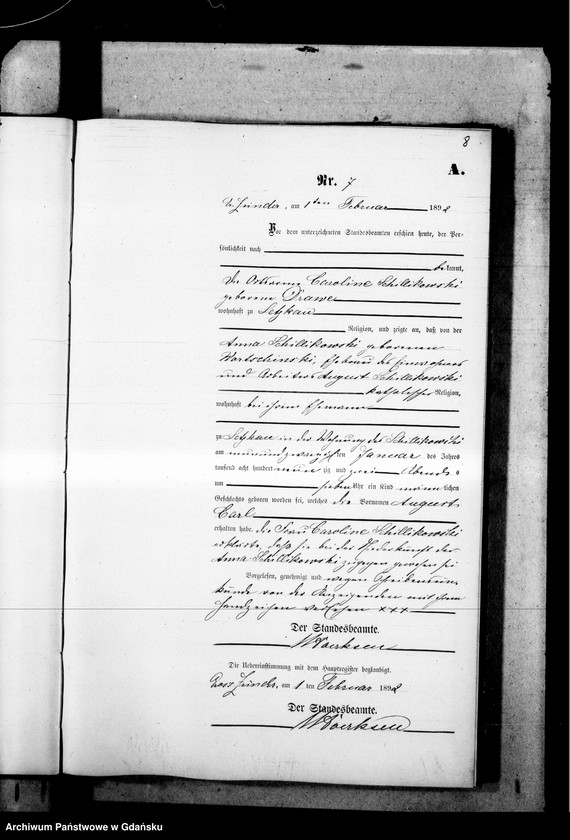 8
A.
Nr. 7
Gr. Zünder, am 1ten Februar 1892
Vor dem unterzeichneten Standesbeamten erschien heute, der Per-
sönlichkeit nach
bekannt,
Die Caroline Schillikowski
geborene Drawer
wohnhaft zu Letzkau
Religion, und zeigte an, daß von der
Anna Schillikowski geborenen
Ehefrau des Einwohners
und Arbeiters August Schillikowski
katholischer Religion,
wohnhaft bei ihrem Ehemann
zu Letzkau in der Wohnung des Schillikowski
am neunundzwanzigsten Januar des Jahres
tausend acht hundert neunzig und zwei Abends
um sieben Uhr ein Kind männlichen
Geschlechts geboren worden sei, welches die Vornamen August
Carl
erhalten habe. Die Frau Caroline Schillikowski
erklärte, daß sie bei der Niederkunft der
Anna Schillikowski zugegen gewesen sei
Vorgelesen, genehmigt und wegen Schreibensun-
kunde von der Anzeigenden mit ihrem
Handzeichen versehen +++
Der Standesbeamte.
Woerksen
Die Uebereinstimmung mit dem Hauptregister beglaubigt.
Gross Zünder, am 1 ten Februar 1892
Der Standesbeamte.
Woerksen
Archiwum Państwowe w Gdańsku